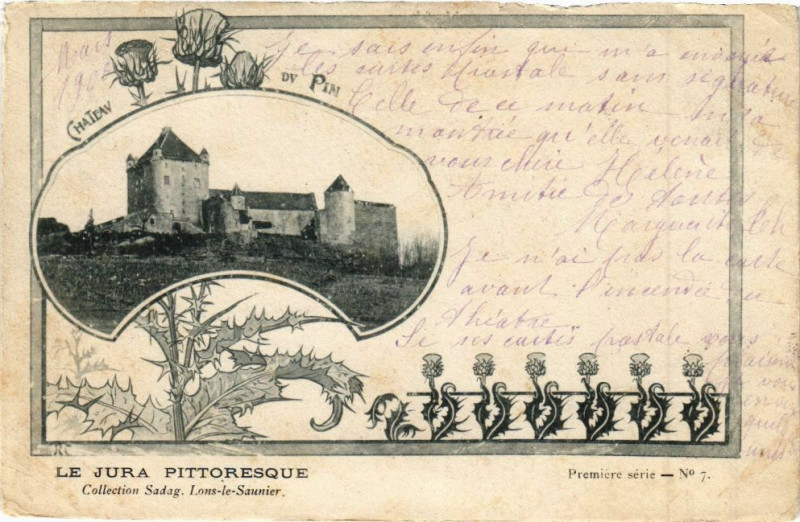 Mars
CHATEAU
DU PIN
Je sais enfin qui m'a envoyée
les cartes postale sans signature
Celle de ce matin m'a
montrée qu'elle venait de
vous chère Hélène
Amitié de toutes
Marguerite
Je n'ai pas la carte
avant l'incendie du
théatre
Si ses cartes postale vous
plaisent
je vous
LE JURA PITTORESQUE
Collection Sadag. Lons-le-Saunier.
Première série — Nº 7.